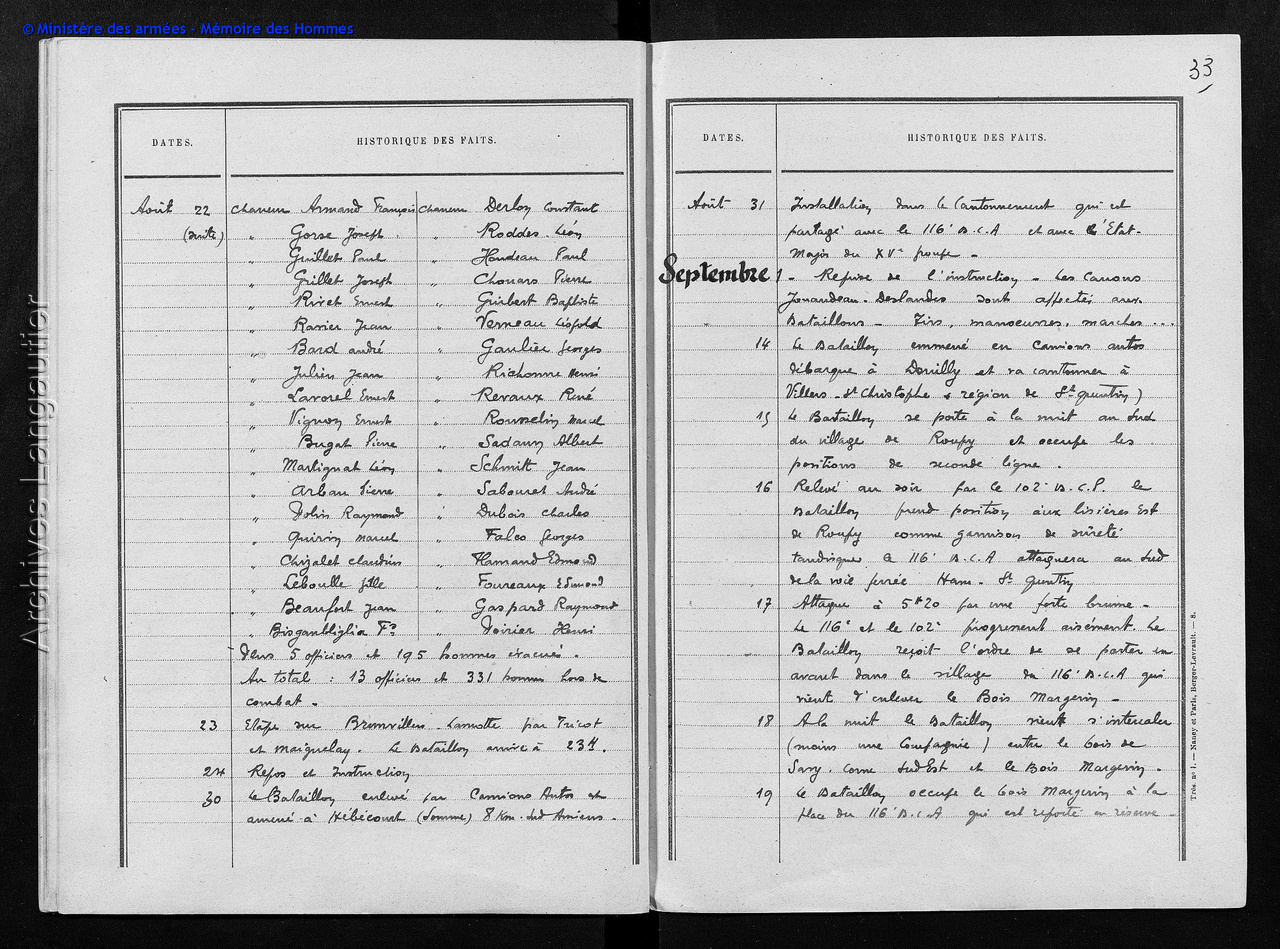 © Ministère des armées - Mémoire des Hommes
Archives Langautier
DATES. HISTORIQUE DES FAITS.
Août 22 Chasseur Armand François Chasseur Derloy Constant
(suite) " Gorse Joseph " Roddes Léon
" Guillet Paul " Houdeau Paul
" Grillet Joseph " Chouars Pierre
" Rivet Ernest " Guibert Baptiste
" Ravier Jean " Verneau Léopold
" Bard André " Gaulier Georges
" Julien Jean " Richomme Henri
" Lavorel Ernest " Revaux René
" Vignon Ernest " Rousselin Marcel
" Bugat Pierre " Sadaury Albert
" Martignat Léon " Schmitt Jean
" Arban Pierre " Sabouret André
" Dolin Raymond " Dubois Charles
" Quirin Marcel " Falco Georges
" Chizalet Claudius " Hamand Edmond
" Leboulle " Foureaux Edmond
" Beaufort Jean " Gaspard Raymond
" Bisganbliglia Fs " Poirier Henri
Plus 5 officiers et 195 hommes évacués.
Au total : 13 officiers et 331 hommes hors de
combat.
23 Etape sur Brunvillers-Lamotte par Tricot
et Maignelay. Le Bataillon arrive à 23H.
24 Repos et Instruction
30 Le Bataillon enlevé par Camions Autos et
amené à Hébécourt (Somme) 8 Km. Sud Amiens.
33
DATES. HISTORIQUE DES FAITS.
Août 31 Installation dans le Cantonnement qui est
partagé avec le 116e B.C.A et avec l'Etat-
Major du XVe groupe -
Septembre 1 - Reprise de l'instruction - Les Canons
Jouandeau-Deslandes sont affectés aux
" Bataillons - Tirs, manoeuvres, marches ...
14 Le Bataillon emmené en camions autos
débarque à Douilly et va cantonner à
Villers-St Christophe (région de St Quentin)
15 Le Bataillon se porte à la nuit au Sud
du village de Roupy et occupe les
positions de seconde ligne.
16 Relevé au soir par le 102e B.C.P. le
Bataillon prend position aux lisières Est
de Roupy comme garnison de sûreté
tandisque le 116e B.C.A attaquera au Sud
de la voie ferrée Ham-St Quentin
17 Attaque à 5h20 par une forte brume -
Le 116e et le 102e progressent aisément. Le
Bataillon reçoit l'ordre de se porter en
avant dans le sillage du 116e B.C.A qui
vient d'enlever le Bois Margerin -
18 A la nuit le Bataillon vient s'intercaler
(moins une Compagnie) entre le bois de
Savy. Corne Sud Est et le Bois Margerin -
19 Le Bataillon occupe le bois Margerin à la
place du 116e B.C.A qui est reporté en réserve -
Très. nº 1. — Nancy et Paris, Berger-Levrault. — 8.